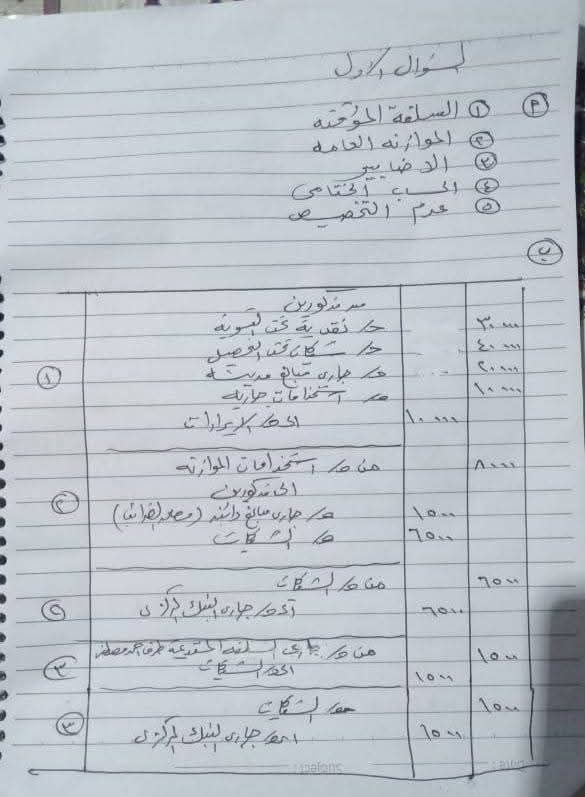 السؤال الاول
أ ① السلفة المؤقته
② الموازنه العامه
③ الاضابير
④ الحساب الختامى
⑤ عدم التخصيص
ب
من مذكورين
٣٠٠٠٠ حـ/ نقدية تحت التسوية
٤٠٠٠٠ حـ/ شيكات تحت التحصيل
٢٠٠٠٠ حـ/ جارى مبالغ مدينه
١٠٠٠٠ حـ/ استخدامات جاريه
١ ١٠٠٠٠٠ الى حـ/ الايرادات
٨٠٠٠ من حـ/ استخدامات الموازنه
الى مذكورين
٢ ١٥٠٠ حـ/ جارى مبالغ دائنه (مصلحه الضرائب)
٦٥٠٠ حـ/ الشيكات
٦٥٠٠ من حـ/ الشيكات
٦٥٠٠ الى حـ/ جارى البنك المركزى
١٥٠٠ من حـ/ جارى السلفه طرف
٣ ١٥٠٠ الى حـ/ الشيكات
١٥٠٠ من حـ/ الشيكات
٣ ١٥٠٠ الى حـ/ جارى البنك المركزى